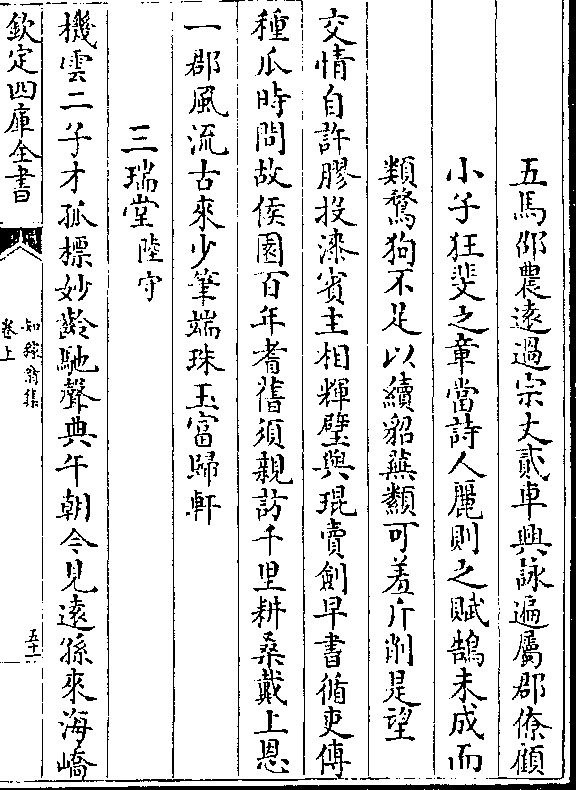 五馬邵農遠過宗丈貳車興詠遍屬郡僚顧
小子狂斐之章當詩人麗則之賦鵠未成而
類鶩狗不足以續貂蕪纇可羞斤削是望
交情自許膠投漆賓主相輝璧與琨賣劍早書循吏傳
種瓜時問故侯園百年耆舊須親訪千里耕桑戴上恩
一郡風流古來少筆端珠玉富歸軒
三瑞堂陸守
機雲二子才孤標妙齡馳聲典午朝今見遠孫來海嶠
欽定四庫全書
知稼翁集
卷上
五十一